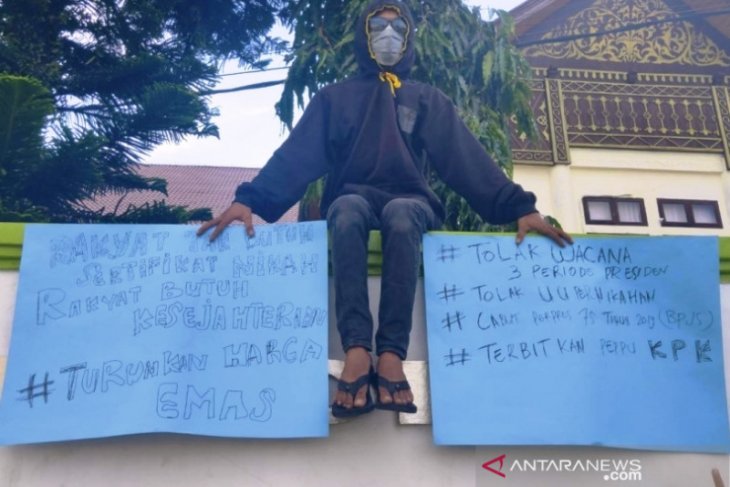 RAKYAT TAK BUTUH
SERTIFIKAT NIKAH
RAKYAT BUTUH
KESEJAHTERAAN
#TURUNKAN HARGA
EMAS
# TOLAK WACANA
3 PERIODE PRESIDEN
# TOLAK UU PERNIKAHAN
# CABUT PERPRES 75 TAHUN 2019 (BPJS)
# TERBITKAN PERPU KPK
ANTARANEWS
.com